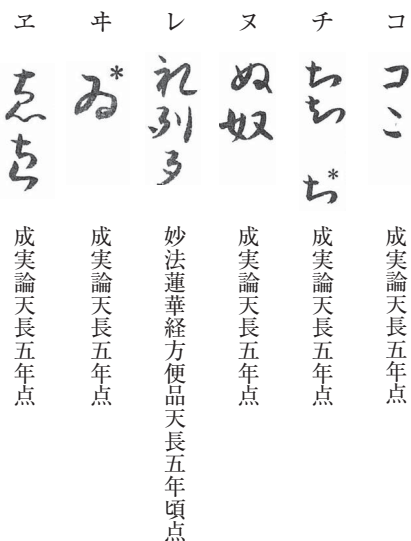 コ コこ 成実論天長五年点
チ ちち ち* 成実論天長五年点
ヌ ぬ奴 成実論天長五年点
レ 礼列 妙法蓮華経方便品天長五年頃点
ヰ ゐ* 成実論天長五年点
ヱ ゑ 成実論天長五年点